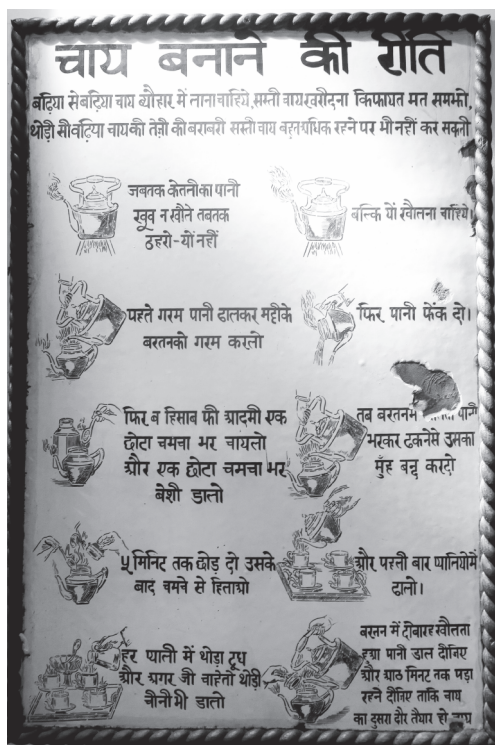 चाय बनाने की रीति
बढ़िया से बढ़िया चाय ब्यौहार में लाना चाहिये, सस्ती चाय खरीदना किफायत मत समझो,
थोड़ी सी बढ़िया चाय की तेज़ी की बराबरी सस्ती चाय बहुत अधिक रहने पर भी नहीं कर सकती
जबतक केतली का पानी
खूब न खौले तबतक
ठहरो-यों नहीं
बल्कि यों खौलना चाहिये।
पहले गरम पानी डालकर मट्टीके
बरतनको गरम करलो
फिर पानी फेंक दो।
फिर ब हिसाब फी आदमी एक
छोटा चमचा भर चायलो
और एक छोटा चमचा भर
बेशी डालो
तब बरतनमें पानी
भरकर ढकनेसे उसका
मुँह बन्द करदो
५ मिनिट तक छोड़ दो उसके
बाद चमचे से हिलाओ
और पहली बार प्यालियोंमें
ढालो।
हर प्याली में थोड़ा दूध
और अगर जी चाहेतो थोड़ी
चीनीभी डालो
बरतन में दोबारह खौलता
हुआ पानी डाल दीजिए
और आठ मिनट तक पड़ा
रहने दीजिए ताकि चाय
का दुसरा दौर तैयार हो जाय